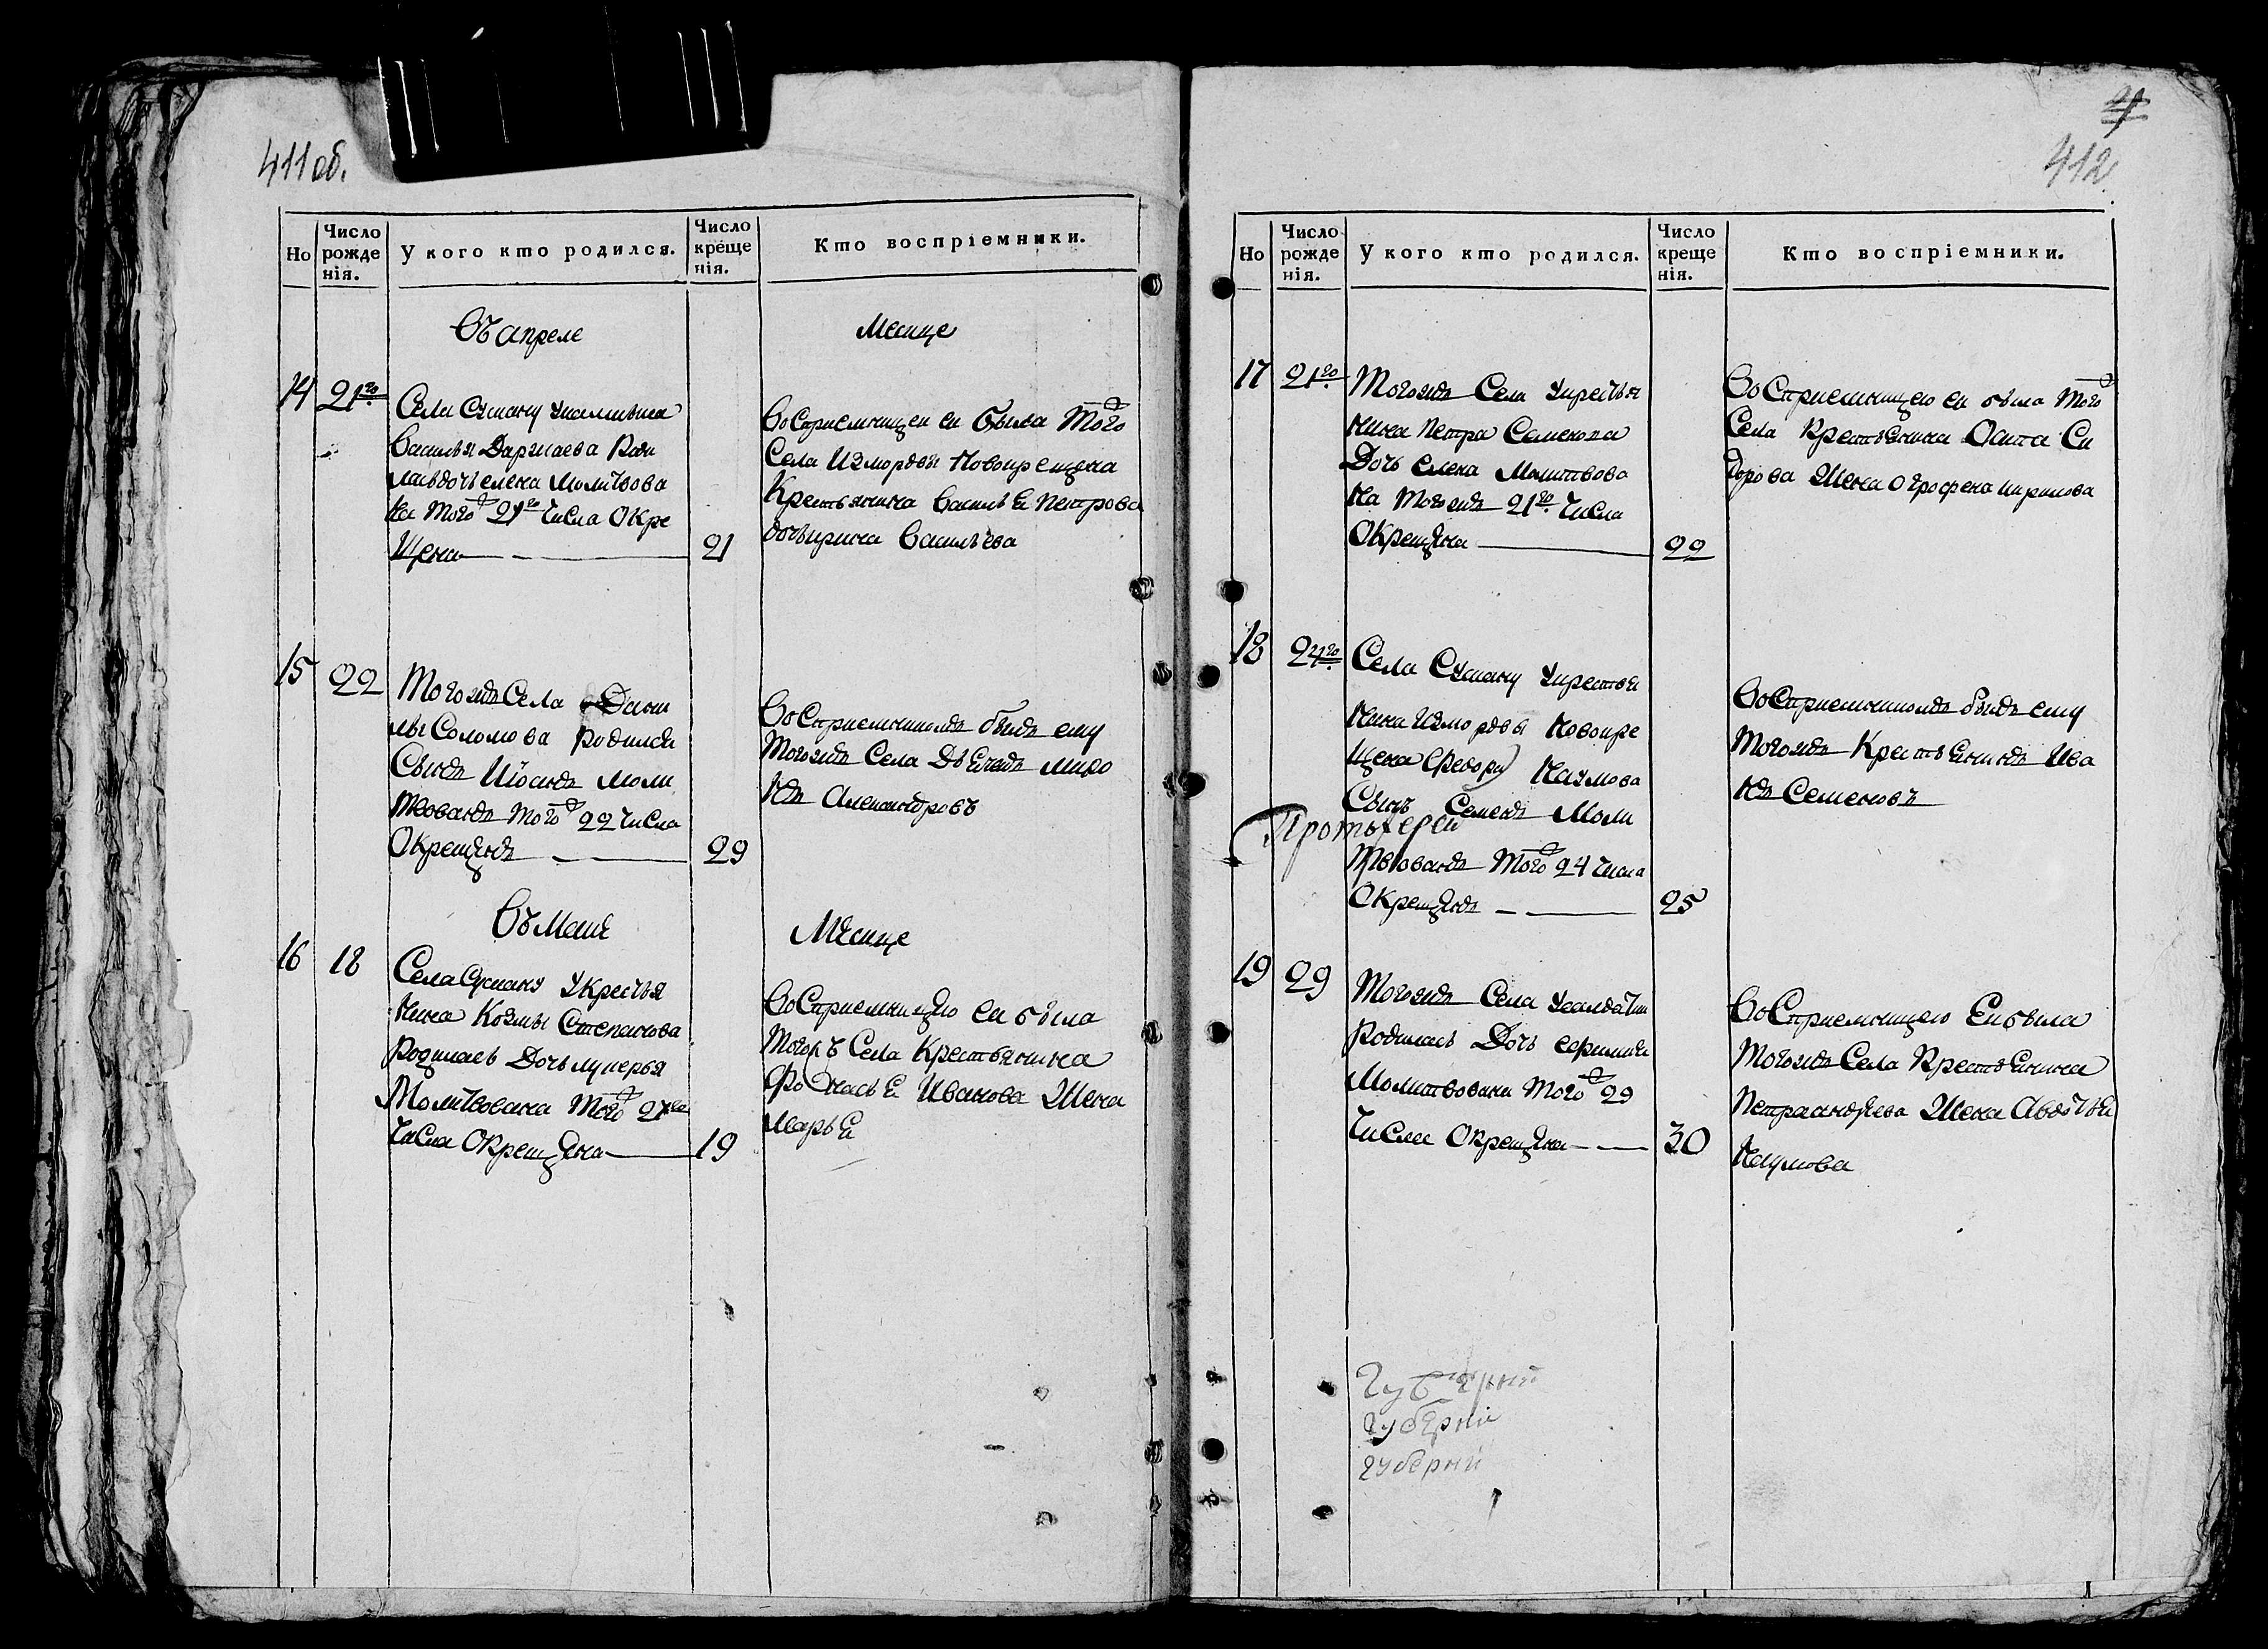 411 об.
Но
Число рожденія.
У кого кто родился.
Число крещенія.
Кто воспріемники.
Въ апреле
Месяце
14
21го
Села Суману
Василья Дарнаева Роди
лась дочь елена Молитвова
на того 21го числа Окре
щена
21
Восприемницеи еи была того
Села Измордвы Новокрещена
Крестьянина Василья Петрова
дочь ирина Васильева
15
22
Тогождъ Села Дани
лы Соломова родился
Сынъ Иоанъ моли
твованъ того 22 числа
Окрещенъ
29
Восприемникомъ былъ ему
Тогождъ Села Дьячекъ миро
нъ Александровъ
Въ Маие
Месяце
16
18
Села Суману Укрестья
нина Козмы Степанова
Родилась Дочь лукерья
Молитвована того
числа Окрещена
19
Восприемницею еи была
Села Крестьянина
Иванова Жена
Марья
412
Но
Число рожденія.
У кого кто родился.
Число крещенія.
Кто воспріемники.
17
21го
Тогождъ Села Укрестья
нина Петра Семенова
Дочь елена Молитвова
на тогождъ 21го числа
Окрещена
22
Восприемницею еи была того
Села Крестьянина Осипа Си
дорова Жена огрофена кирилова
18
24го
Села Суману Укрестья
нина Измордвы Новокре
щена Федора Наумова
Сынъ Семенъ Моли
Протыерей
твованъ того 24 числа
Окрещенъ
25
Восприемникомъ былъ ему
Тогождъ Крестьянинъ Ива
нъ Семеновъ
19
29
Тогождъ Села Усалдатки
родилась Дочь
Молитвована того 29
числа Окрещена
30
Восприемницею Еи была
Тогождъ Села Крестьянина
Петра андреева Жена Авдотья
Наумова
губерний
губерний
губерний